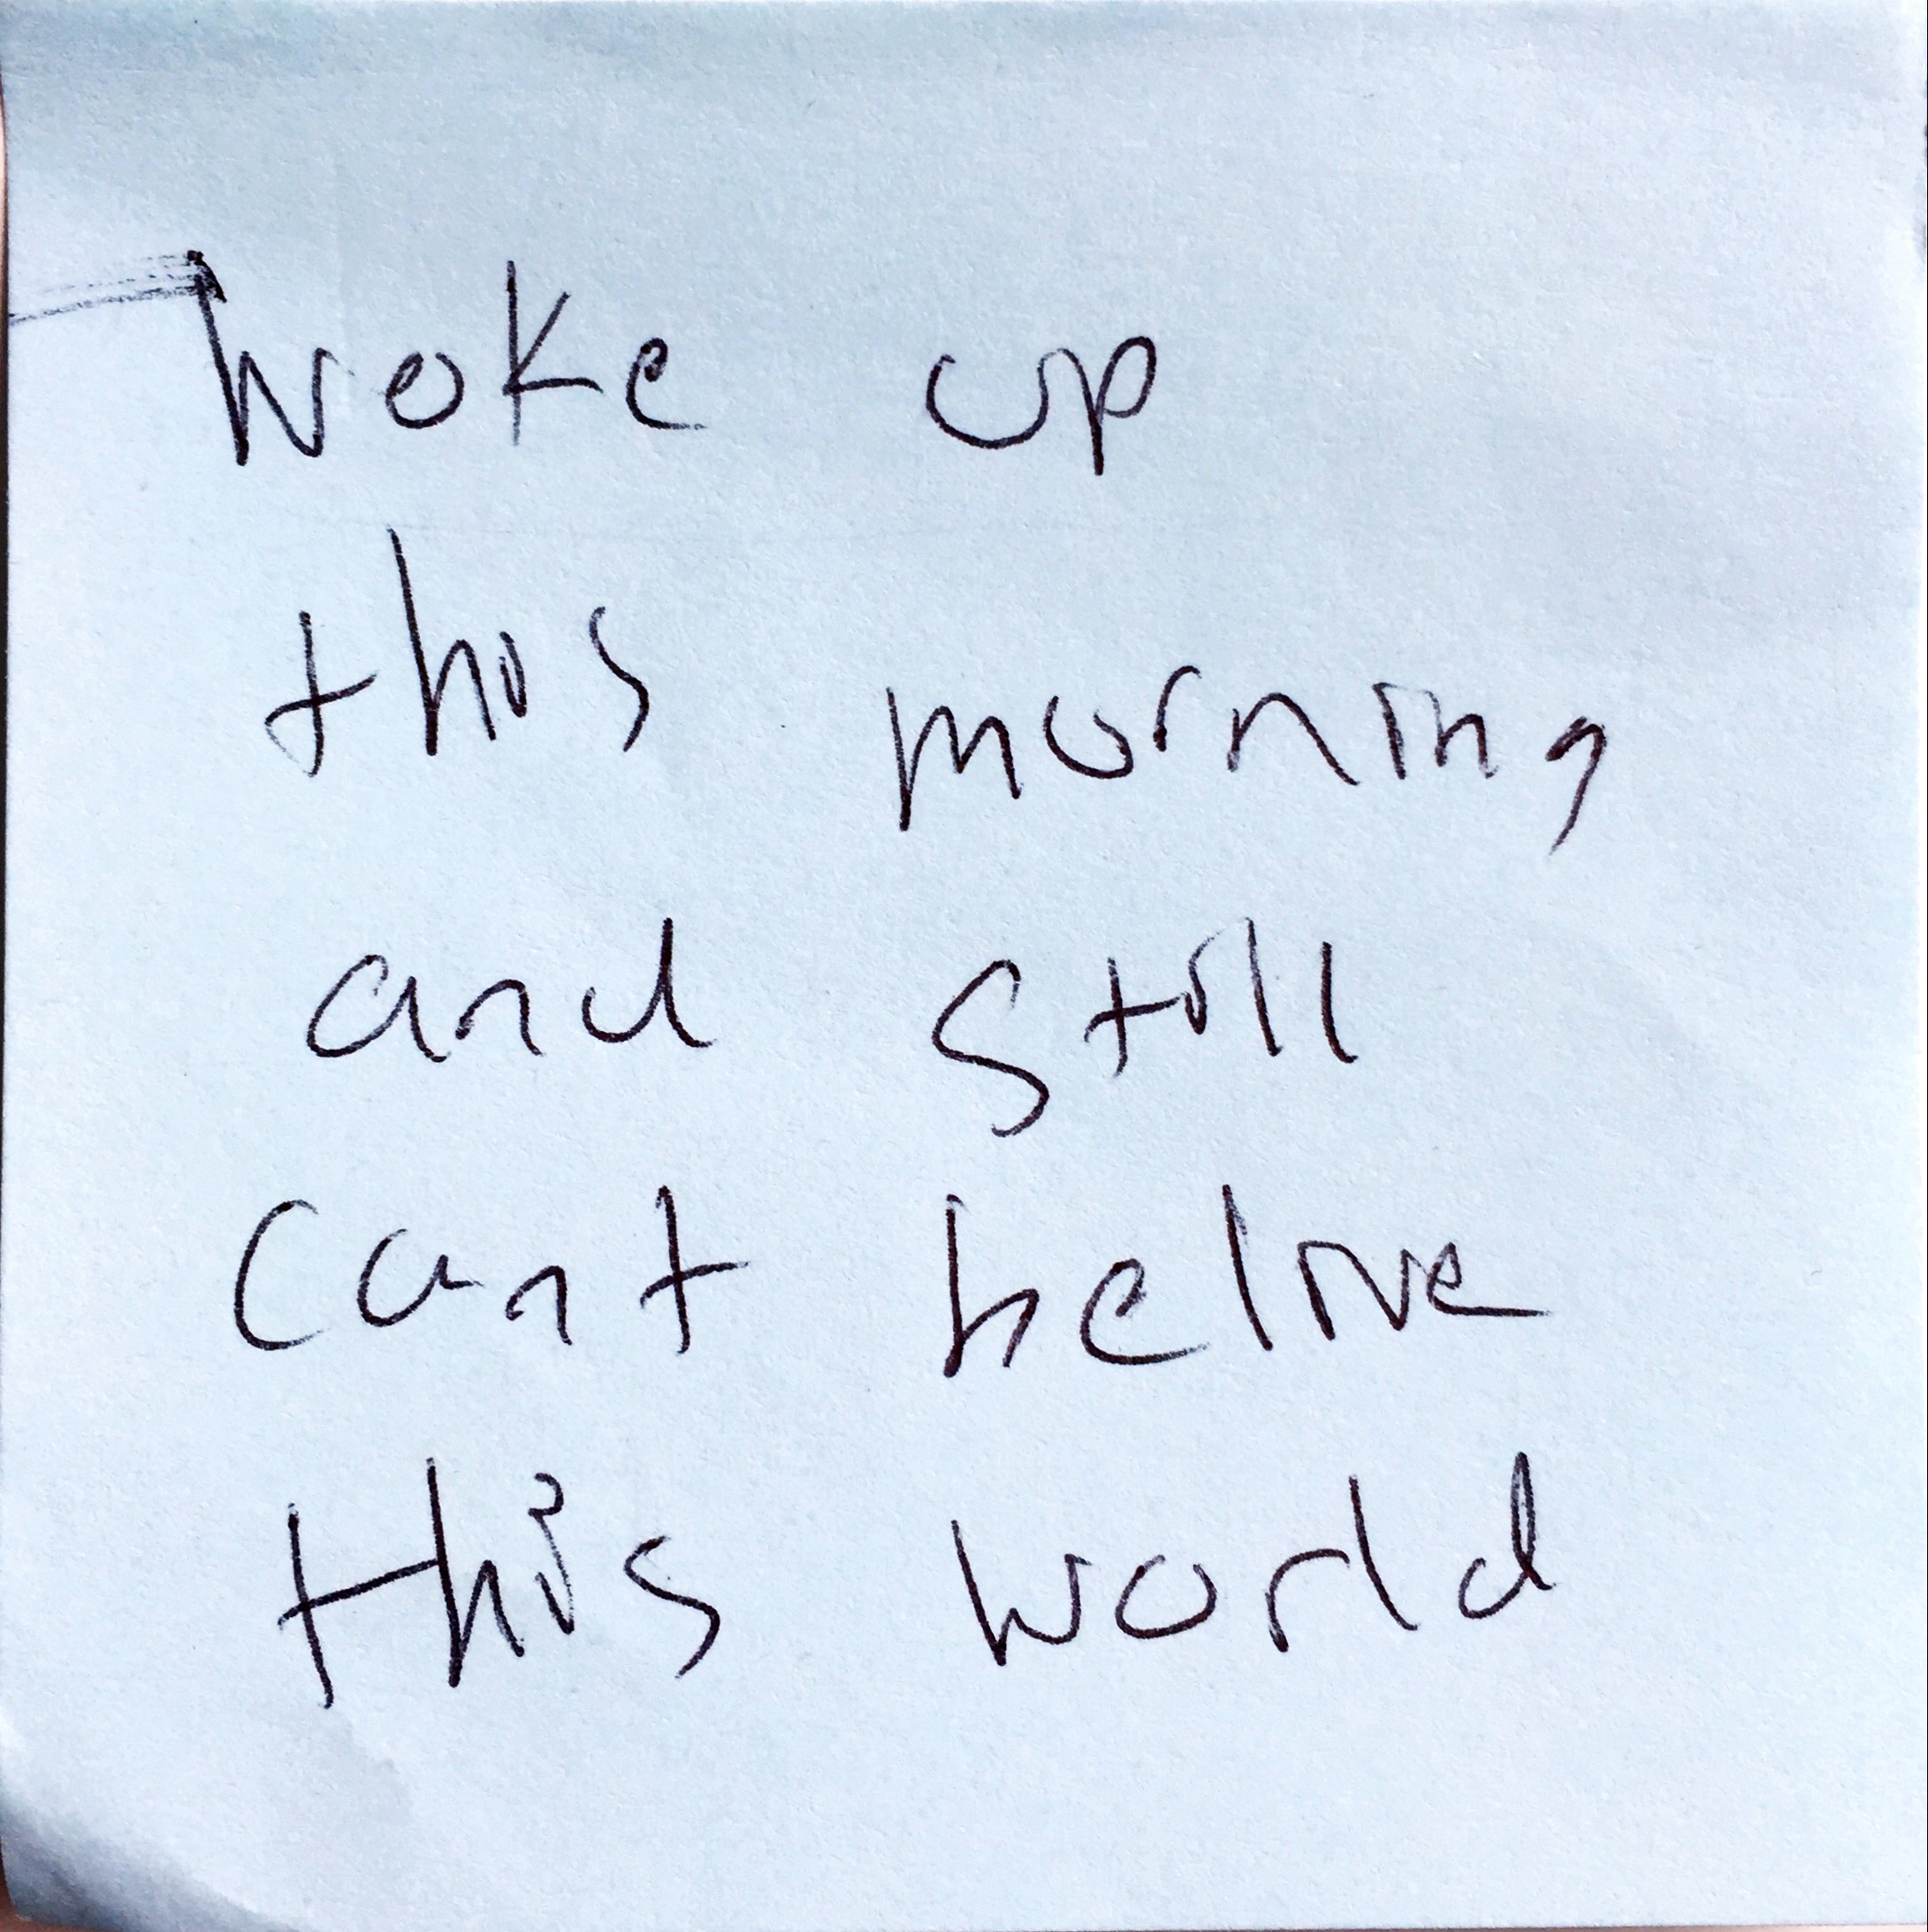 woke up
this morning
and still
cant belive
this world